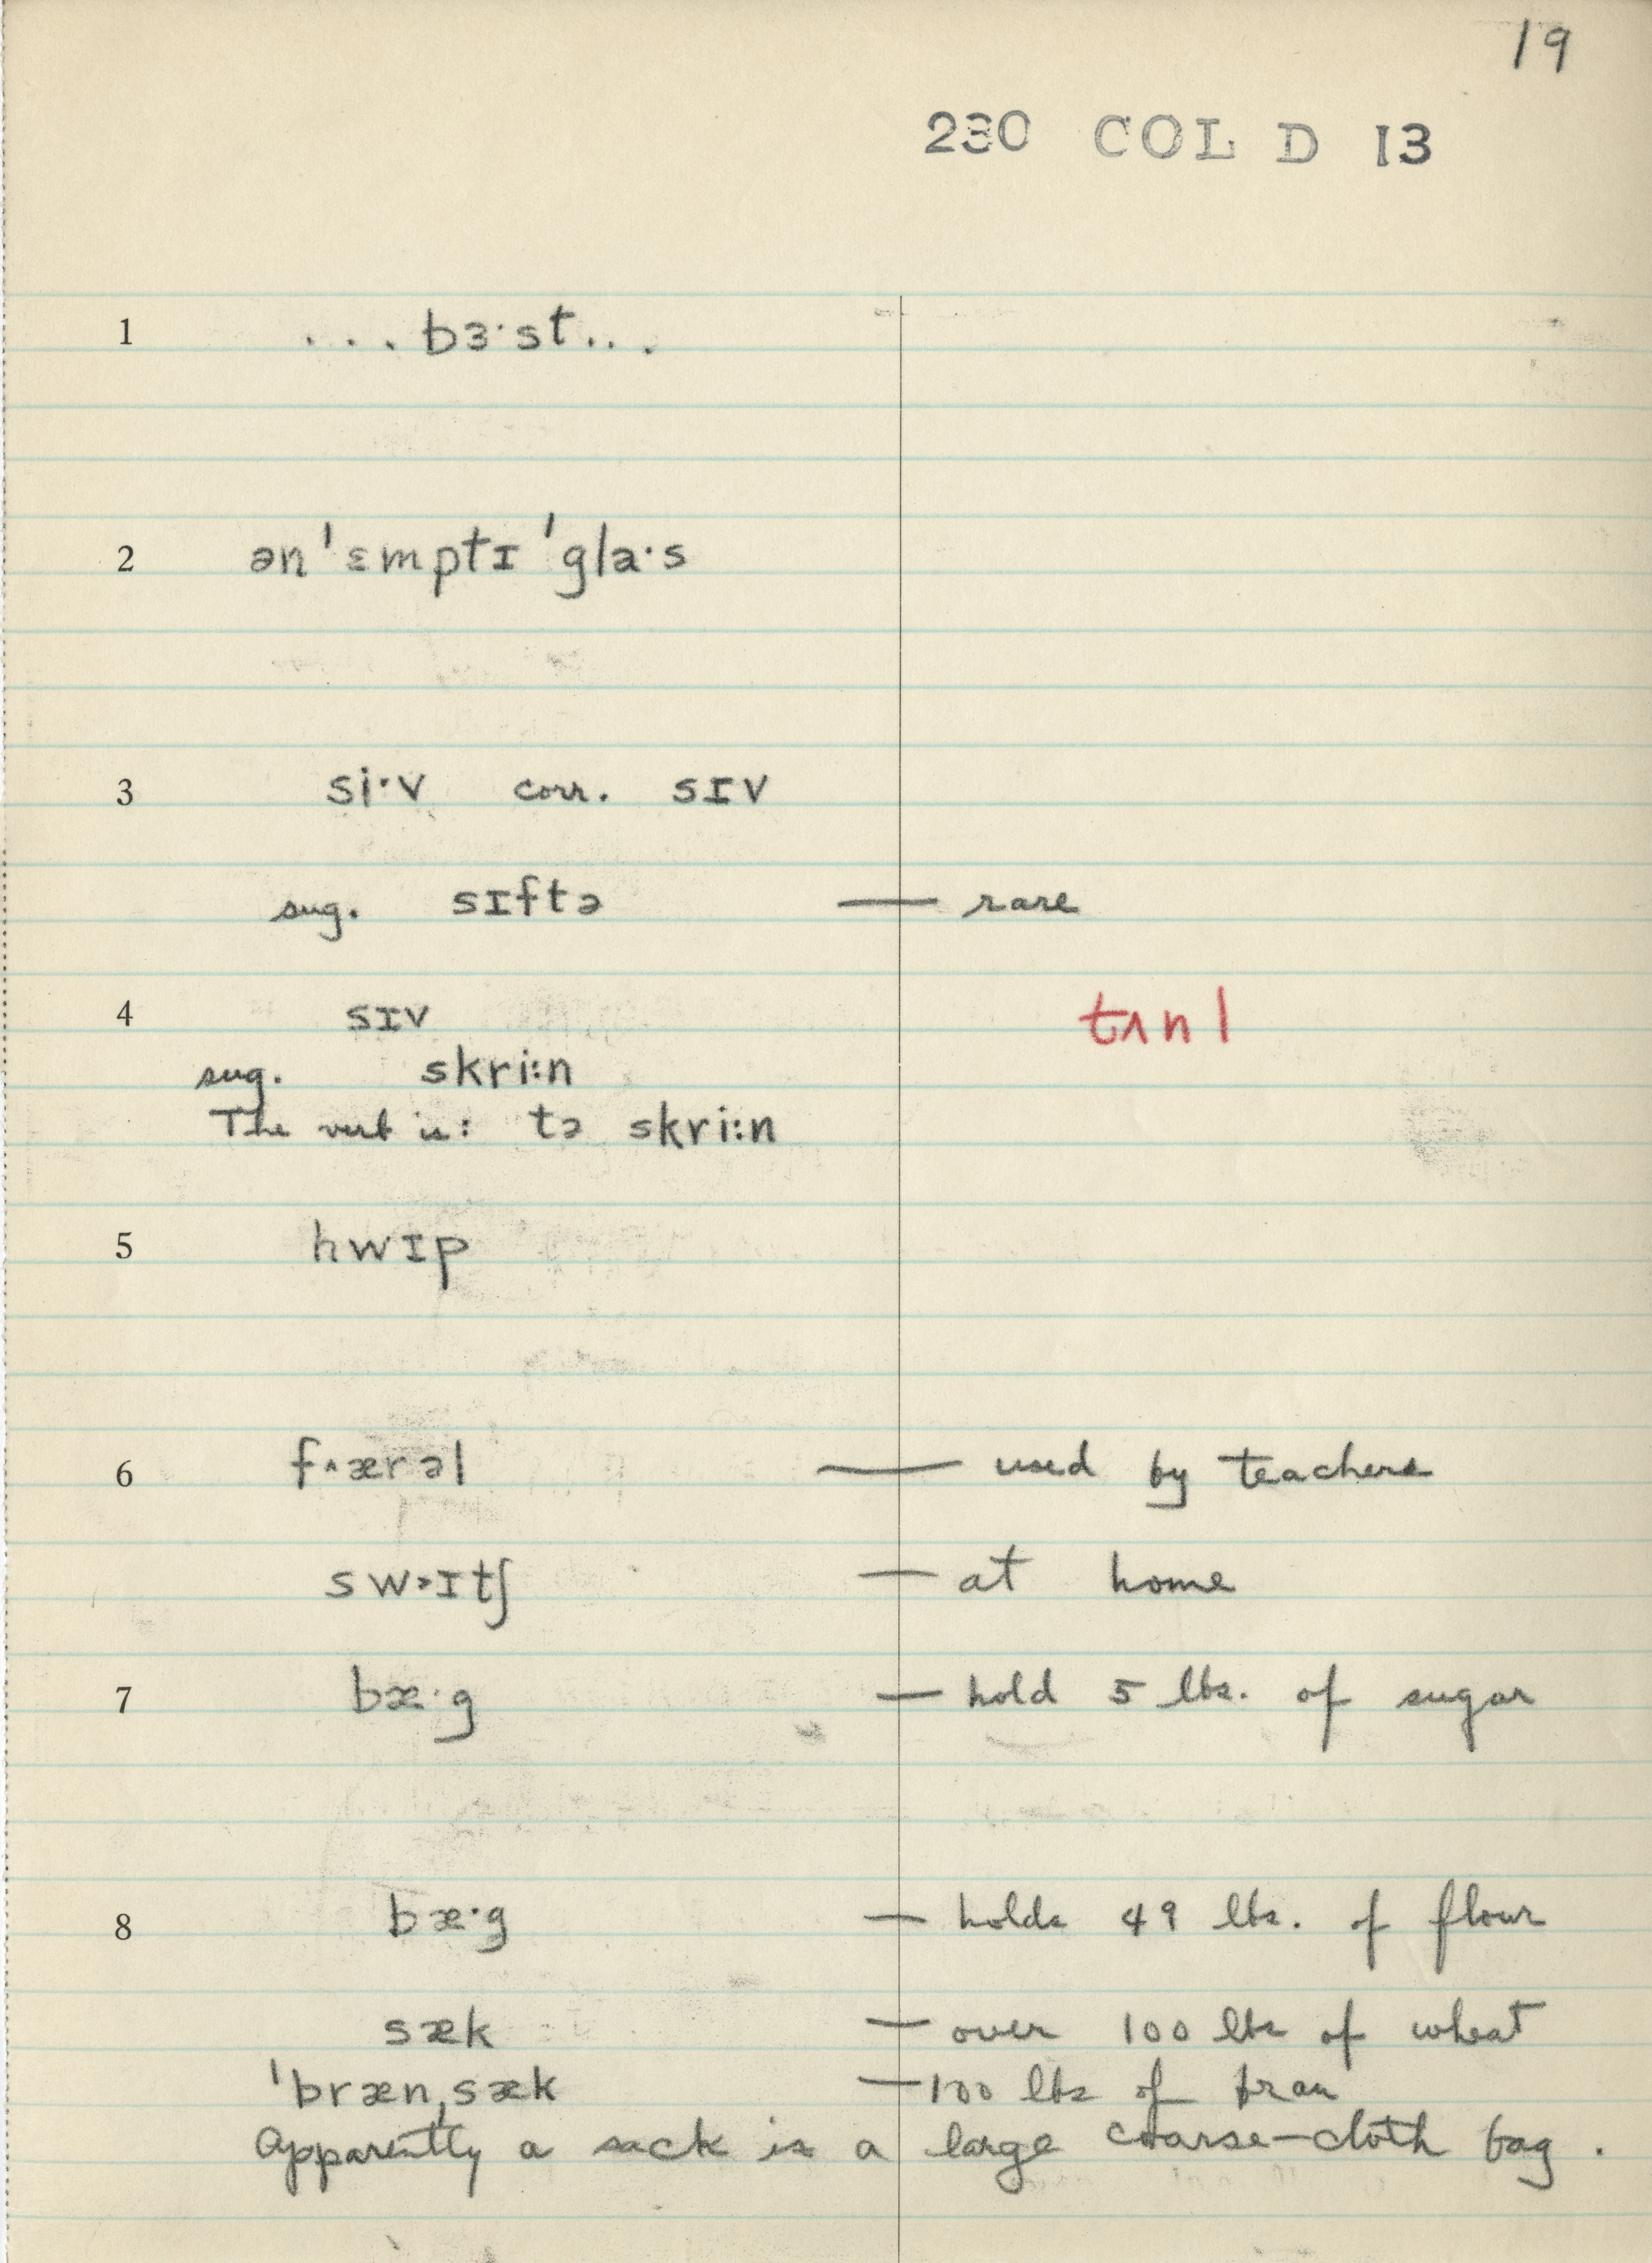 19
230 COL D 13
1 ...bɜ·st...
2 ən ˈɛmptɪ ˈglа·s
3 si·v corr. sɪv
sug. sɪftə — rare
4 sɪv tʌnl
sug. skri:n
The verb is: tə skri:n
5 hwɪp
6 f^ærəl — used by teachers
sw>ɪtʃ — at home
7 bæ·g — hold 5 lbs. of sugar
8 bæ·g — holds 49 lbs. of flour
sæk — over 100 lbs of wheat
ˈbrænˌsæk — 100 lbs of bran
Apparently a sack is a large coarse-cloth bag.